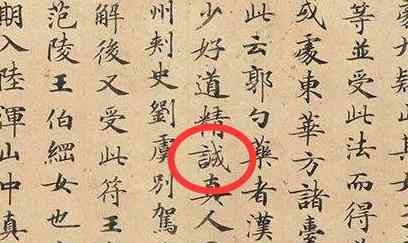 處九疑山
等並受此法而得
或處東華方諸臺
此云郭勺藥者漢
少好道精誠真人
州刺史劉虞別駕
解後又受此符王
范陵王伯綱女也
期入陸渾山中真